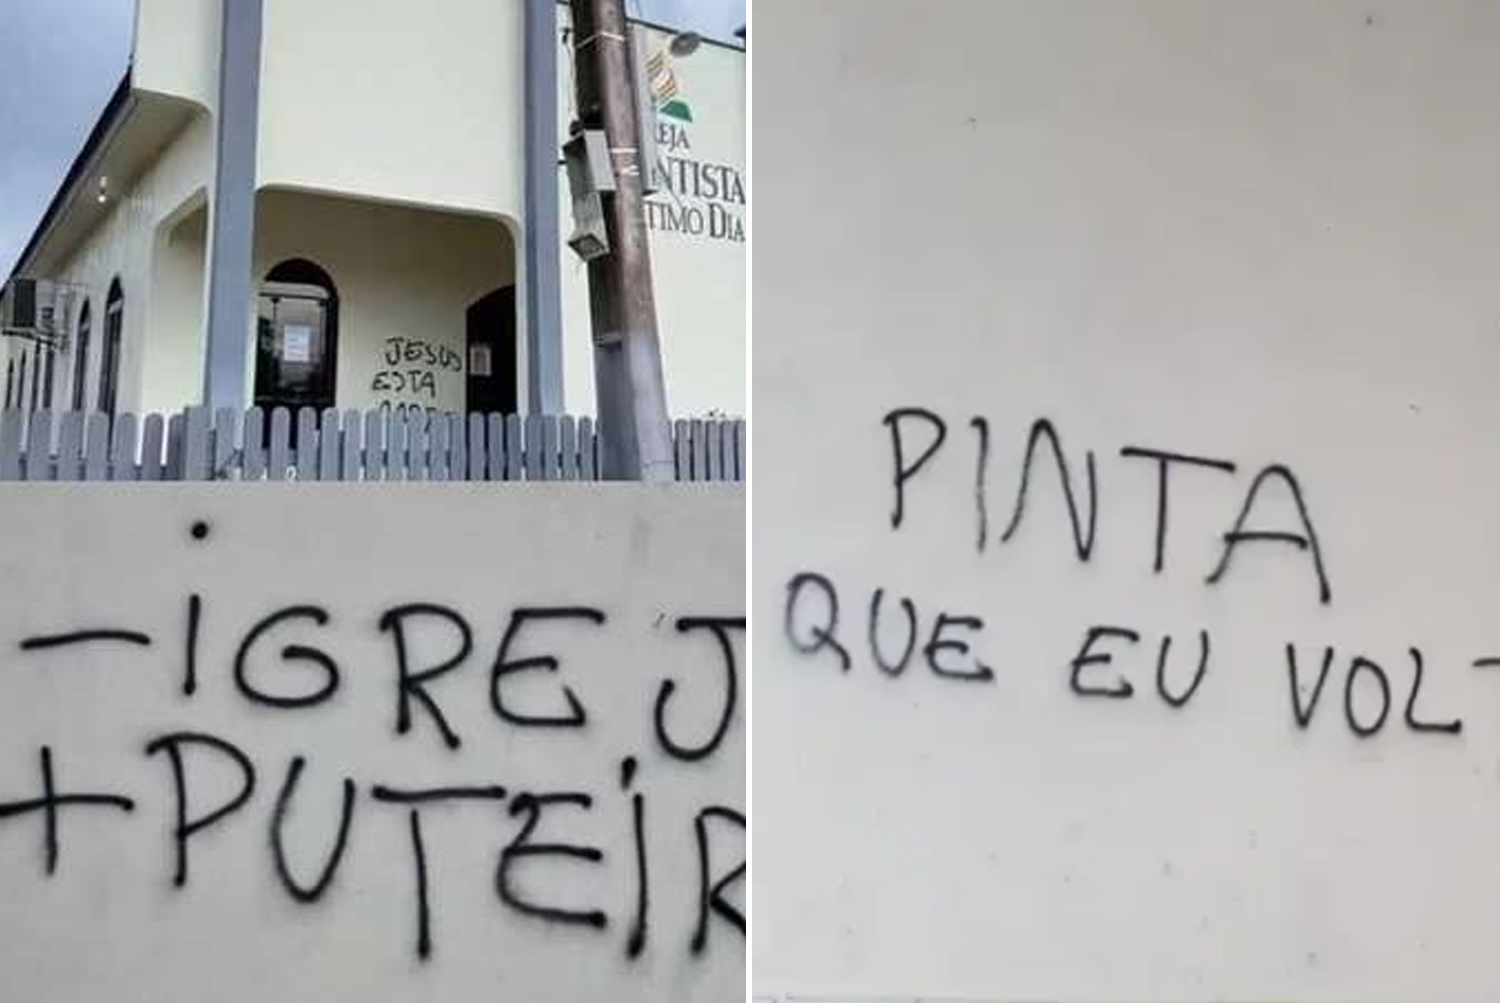 EJA
NTISTA
TIMO DIA
JESUS
ESTA
-IGREJ
+PUTEIR
PINTA
QUE EU VOLT